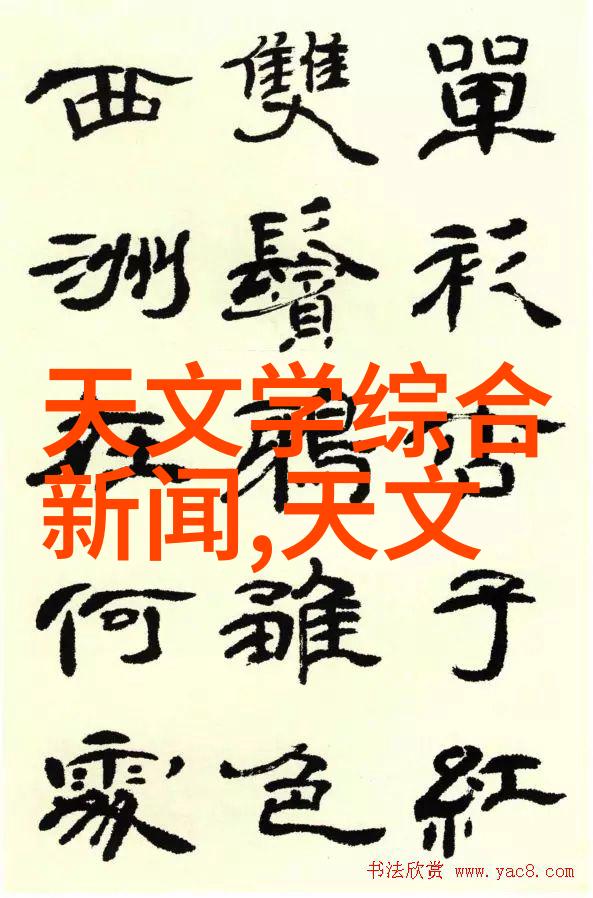 單衫杏子紅
雙鬢鴉雛色
西洲在何處
天文学综合
新闻,天文
书法欣赏 www.yac8.com